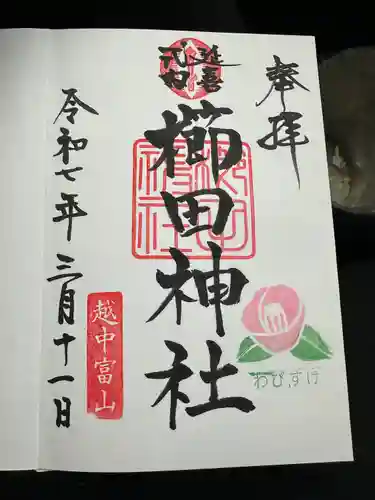 奉拝
延喜
式内
櫛田神社
櫛田
神社
令和七年三月十一日
越中富山
わびすけ